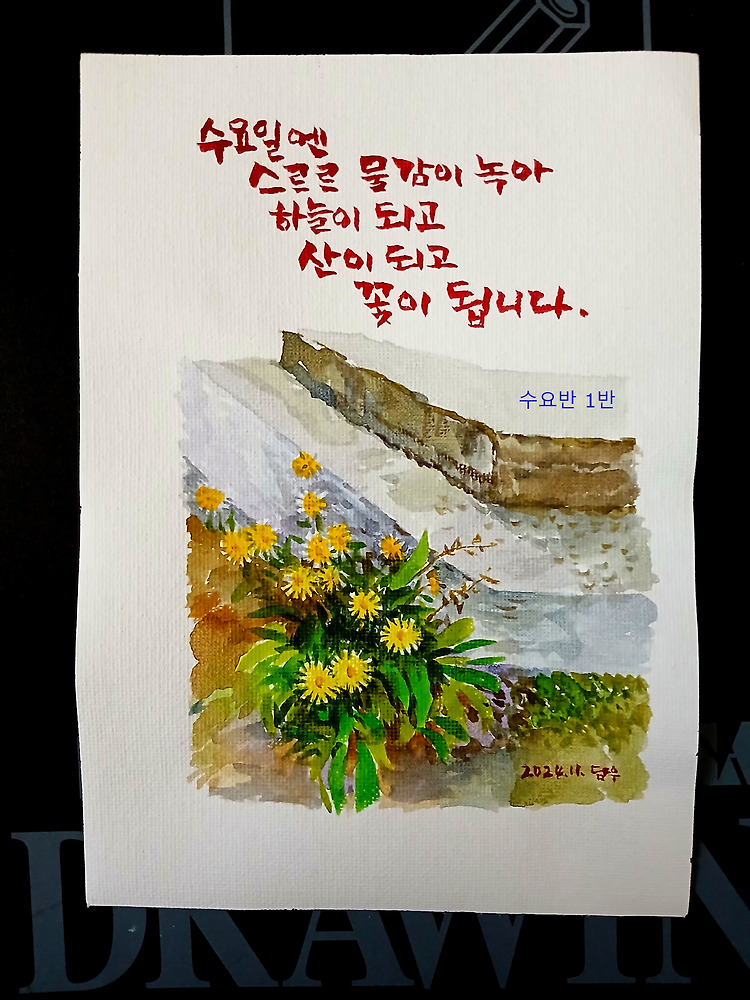 수요일엔
스르르 물감이 녹아
하늘이 되고
산이 되고
꽃이 됩니다.
수요반 1반
2024.11. 담우
DRAWIN